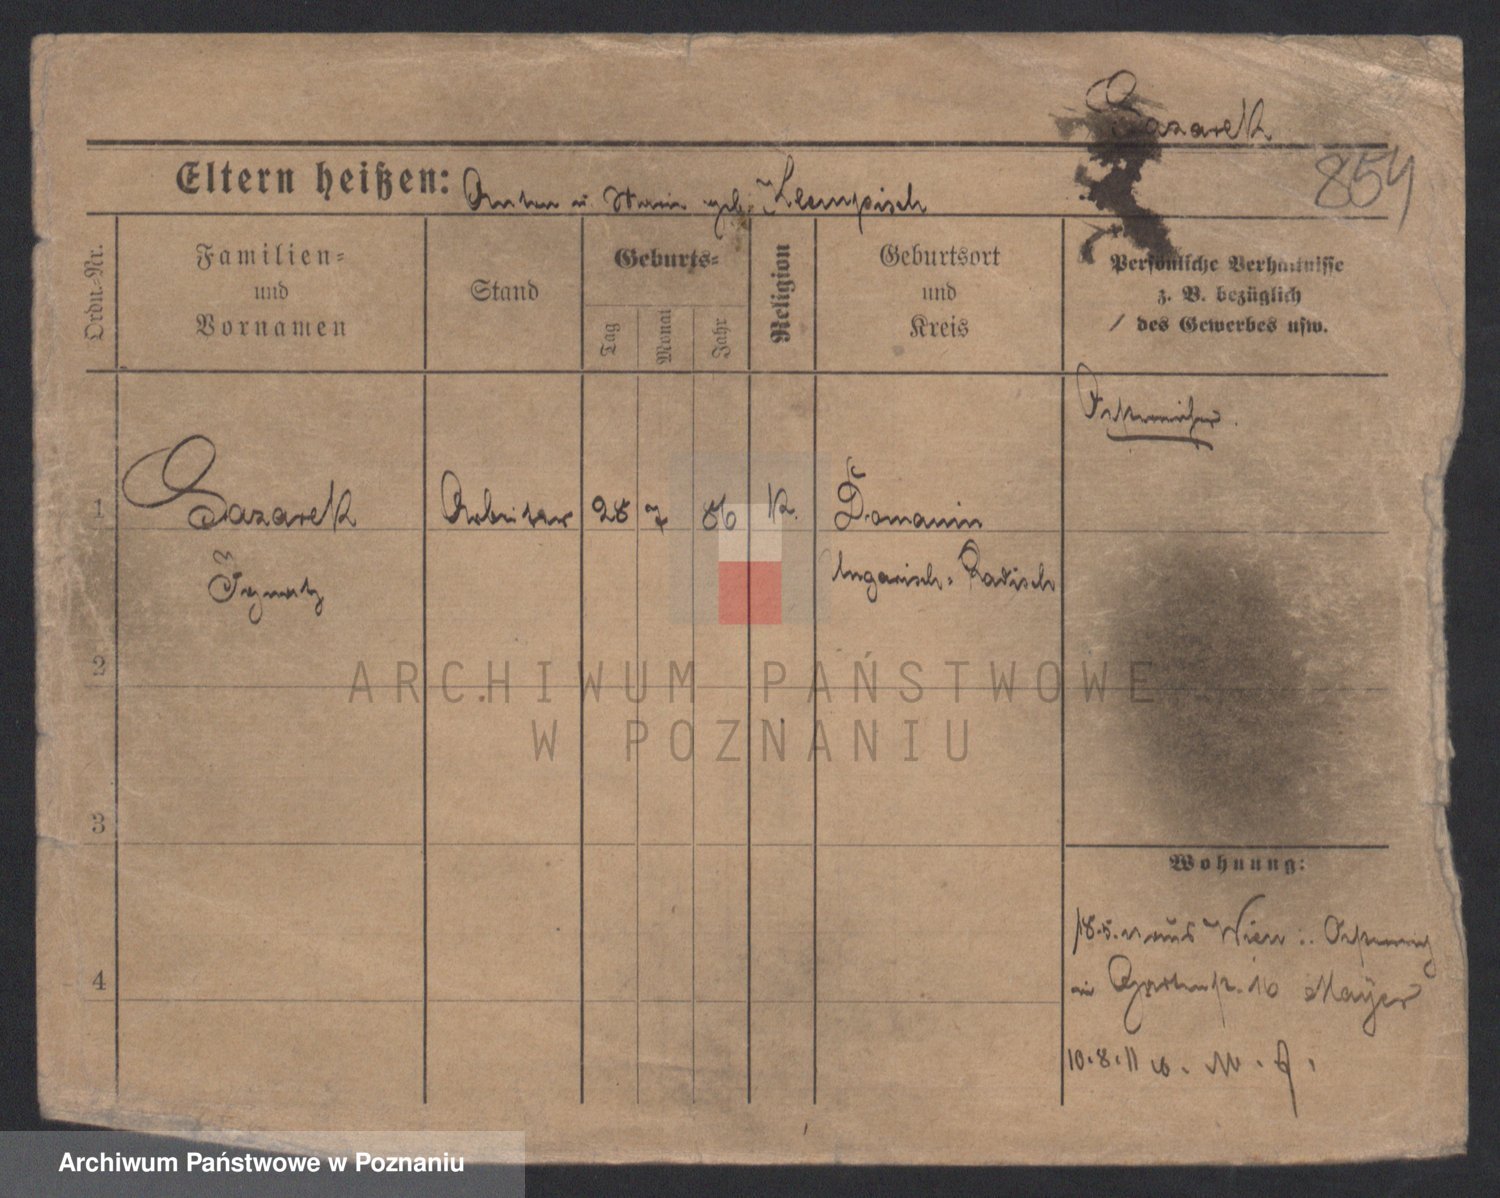 Gazarek
854
Eltern heißen: Anton u Maria geb. Klempisch
Ordn.-Nr.
Familien-
und
Vornamen
Stand
Geburts-
Tag
Monat
Jahr
Religion
Geburtsort
und
Kreis
Persönliche Verhältnisse
z. B. bezüglich
des Gewerbes usw.
Österreicher.
1
Gazarek
Arbeiter
28
7
86
K.
Domanin
Ignatz
Ungarisch-Radisch
2
3
4
Wohnung:
18.5.11 aus Wien
in 16 Mayer
10.8.11
ARCHIWUM PAŃSTWOWE
W POZNANIU
Archiwum Państwowe w Poznaniu